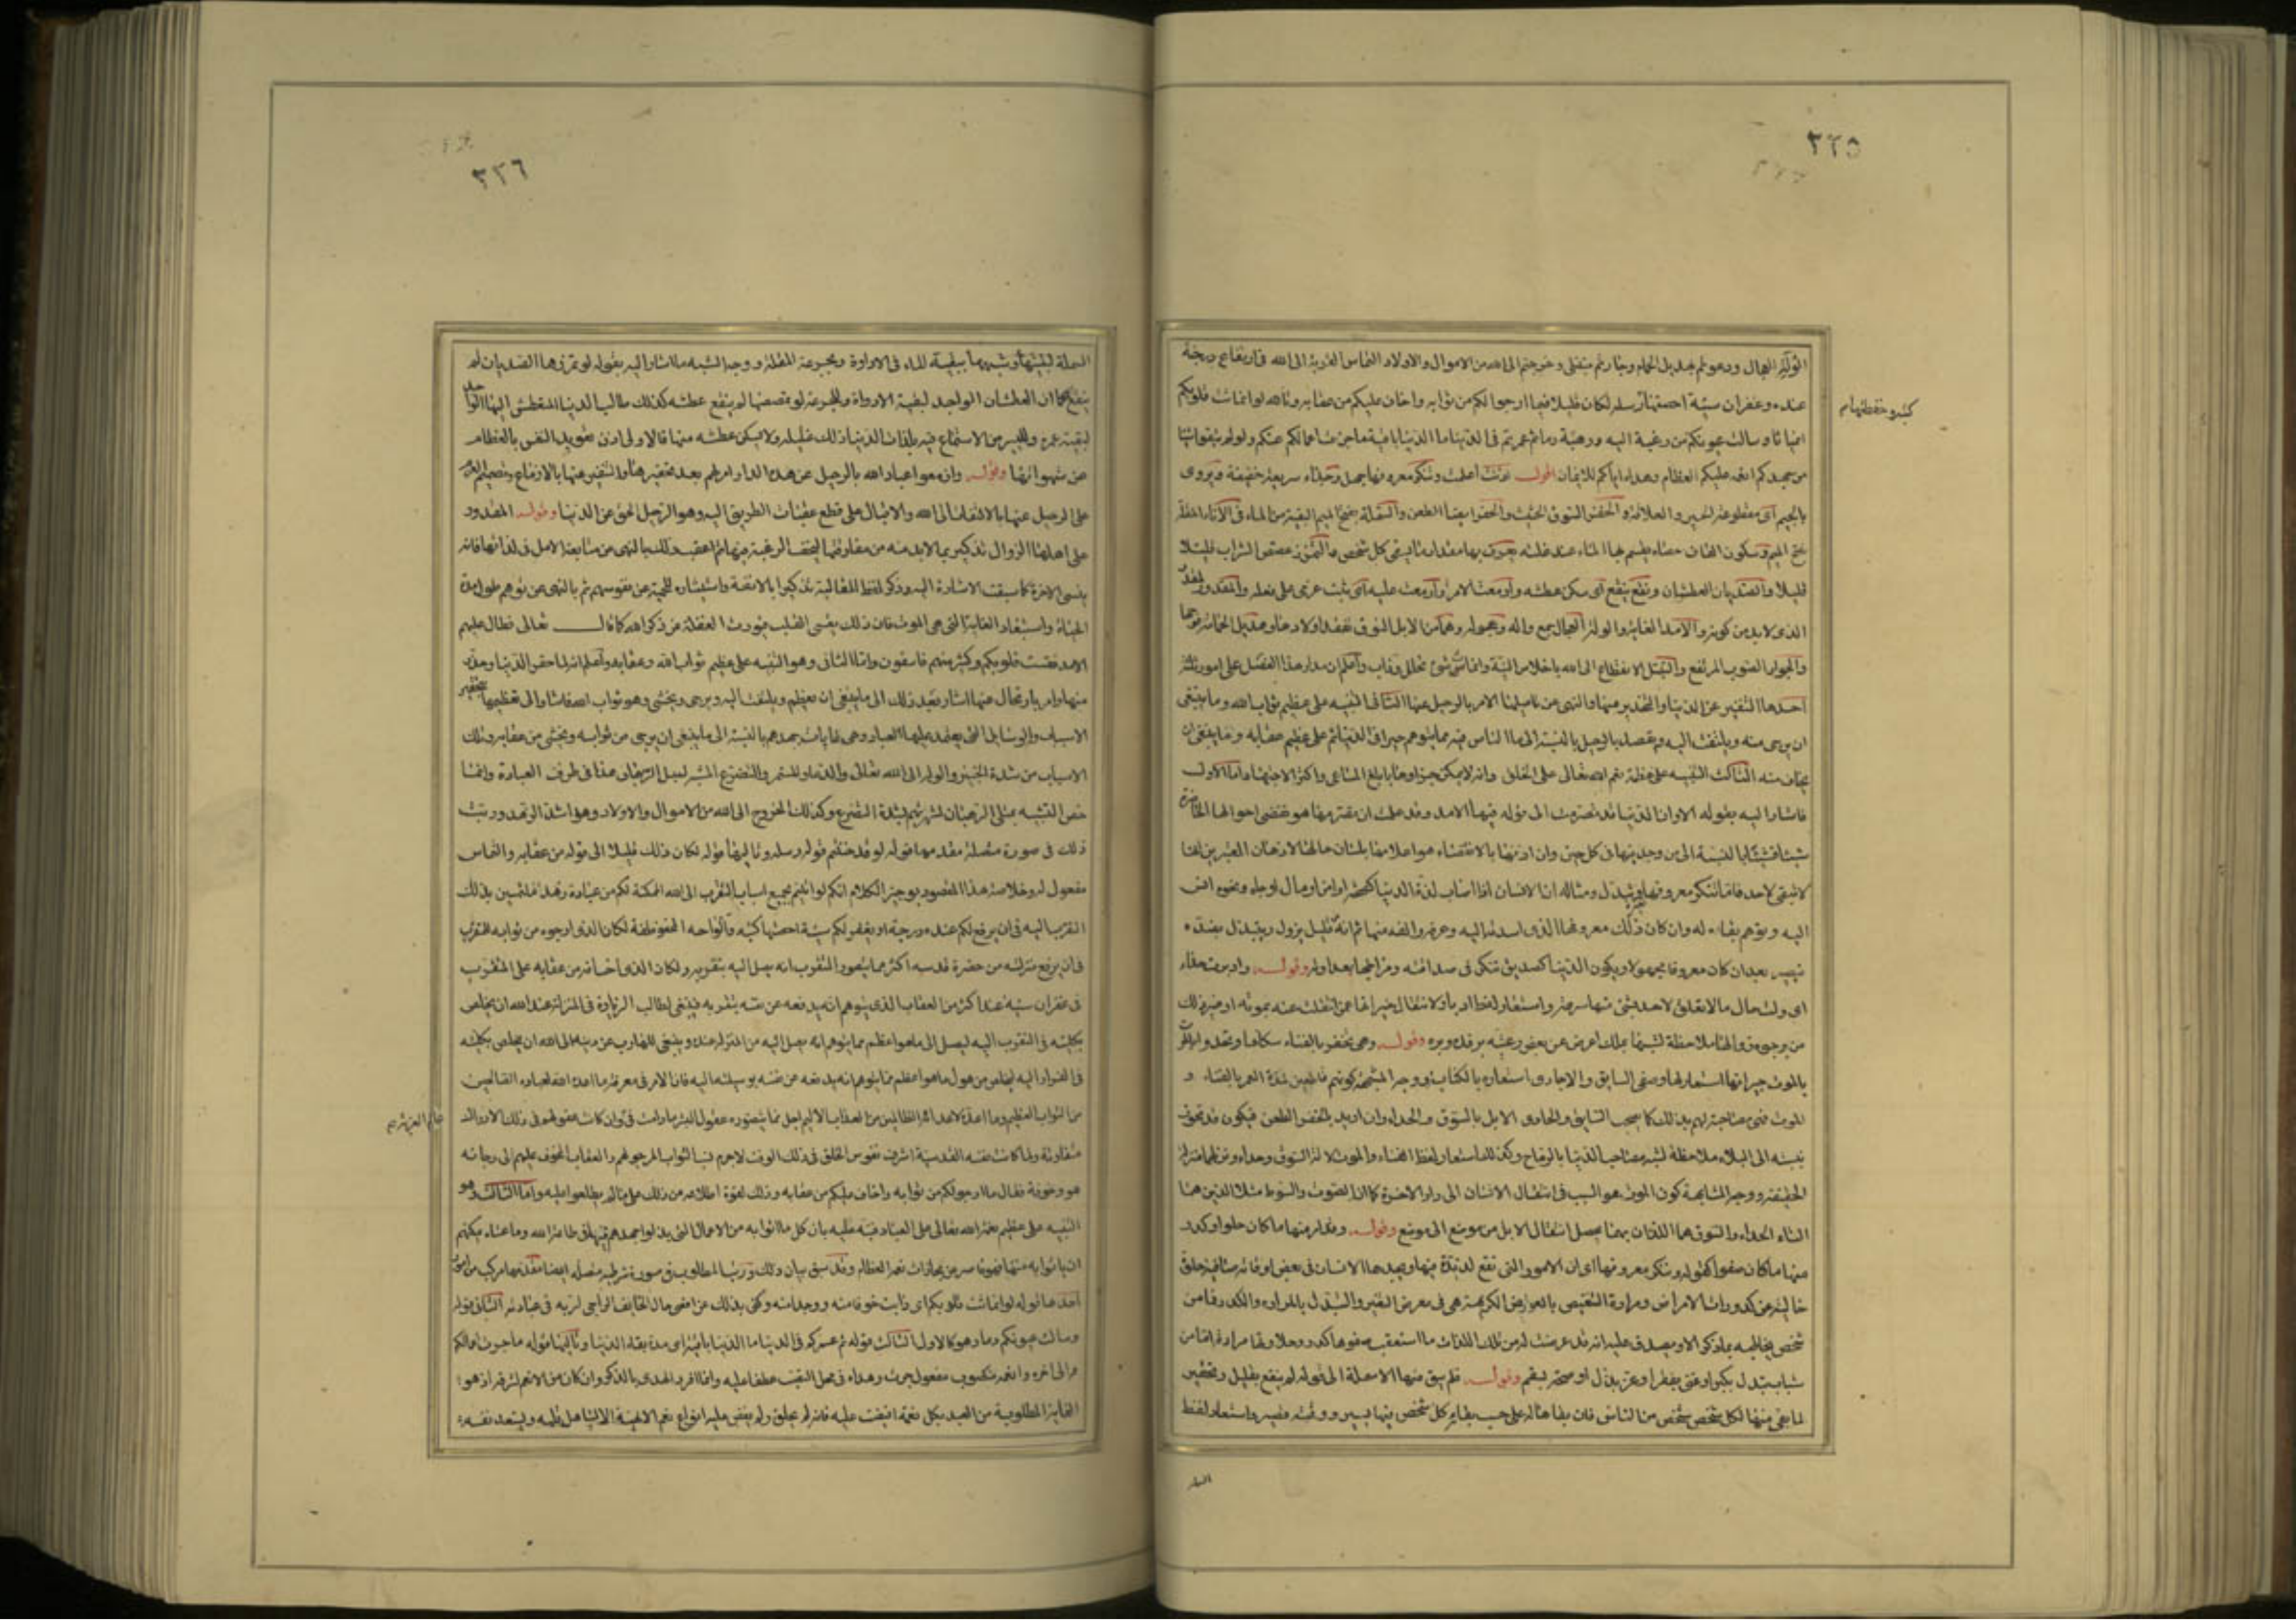 ٣٢٥
الوُلّه العجال ودعوتم بهديل الحمام وجأرتم متبتلى وخرجتم الى الله من الاموال والاولاد التماس القربة الى الله فى ارتفاع درجة
عنده وغفران سيئة احصتها رسله لكان قليلا فيما ارجو لكم من ثوابه واخاف عليكم من عقابه وتالله لو انماثت قلوبكم
كتبه وحفظتها
انمياثا وسالت عيونكم من رغبة اليه ورهبة دما ثم عمرتم فى الدنيا ما الدنيا باقية ما جزت اعمالكم عنكم ولو لم تبقوا شيئا
من جهدكم انعمه عليكم العظام وهداه اياكم للايمان اقول آذنت اعلمت وتنكر معروفها جهل وحذاء سريعة خفيفة ويروى
بالجيم اى مقطوعة الخير والعلاقة والحفز السوق الحثيث والحفز ايضا الطعن والسملة بفتح الميم البقية من الماء فى الاناء والمقلة
بفتح الميم وسكون القاف حصاة يقسم بها الماء عند قلته يعرف بها مقدار ما يسقى كل شخص والتمزز تمصص الشراب قليلا
قليلا والصديان العطشان ونقع ينقع اى سكن عطشه وازمعت الامر وازمعت عليه اى ثبت عزمى على فعله والمقدور المقدر
الذى لابد من كونه والامد الغاية والوله العجال جمع واله وعجول وهما من الابل النوق تفقد اولادها وهديل الحمامة نوحها
والجوار الصوت المرتفع والتبتل الانقطاع الى الله باخلاص النية وانماث الشىء تحلل وذاب واعلم ان مدار هذا الفصل على امور ثلثة
احدها التنفير عن الدنيا والتحذير منها والنهى عن تاميلها والامر بالرحيل عنها الثانى التنبيه على عظيم ثواب الله وما ينبغى
ان يرجى منه ويلتفت اليه ويقصد بالرحيل بالنسبة الى ما الناس فيه مما يتوهم خيرا فى الدنيا ثم على عظيم عقابه وما ينبغى ان
يخاف منه الثالث التنبيه على عظمة نعم الله تعالى على الخلق وانه لا يمكن جزاؤها بابلغ المساعى واكثر الاجتهاد اما الاول
فاشار اليه بقوله الا وان الدنيا قد تصرمت الى قوله فيها الامد وقد علمت ان تصرمها هو تقضى احوالها الحاضرة
شيئا فشيئا بالنسبة الى من وجد فيها فى كل حين وان اذنها بالانقضاء هو اعلامها بلسان حالها لاذهان المعتبرين انها
لا تبقى لاحد فاما تنكر معروفها فتغيره وتبدله ومثاله ان الانسان اذا اصاب لذة الدنيا كصحة او امن او مال او جاه ونحوه انس
اليه وتوهم بقاءه له وان كان ذلك معروفها الذى اسدته اليه وعرفه والفه منها ثم انه قليل يزول ويتبدل بضده
فيصير بعد ان كان معروفا مجهولا ويكون الدنيا كصديق تنكر فى صداقته ومزاجها بعداوة وقوله وادبرت حذاء
اى ولت حال ما لا تعلق لاحد بشىء منها مسرعة واستعار لفظ الادبار لانتقال خيراتها عمن انتقلت عنه بموته او غير ذلك
من وجوهه والهاملاحظة لشبهها بملك اعرض عن بعض رعيته برفده وبره وقوله وهى تحفز بالفناء سكانها وتحدو
بالموت جيرانها استعار لها وصفى السابق والحادى استعارة بالكناية ووجه المشابهة كونهم قاطعين لمدة العمر بالفناء و
الموت فهى مصاحبة لهم بذلك كما يصحب السابق والحادى الابل بالسوق والحداء وان اريد بالحفز الطعن فيكون قد تجوز
بنسبته الى البلاء ملاحظة لشبه مصائب الدنيا بالرماح وكذلك استعار لفظ الفناء والموت لالة السوق والحداء ونزلهما منزلة
الحقيقة ووجه المشابهة كون الموت هو السبب فى انتقال الانسان الى دار الاخرة كما ان الصوت والسوط مثلا الذين هما
الناء الحداء والسوق هما اللذان بهما يحصل انتقال الابل من موضع الى موضع وقوله وقد امر منها ما كان حلوا وكدر
منها ما كان صفوا كقوله وتنكر معروفها اى ان الامور التى تقع لذيذة فيها ويجدها الانسان فى بعض اوقاته صافية حلوة
خالية من كدورات الامراض ومرارة التنغيص بالعوارض الكريهة هى فى معرض التغير والتبدل بالمرارة والكدر فما من
شخص يخاطبه بما ذكر الا ويصدق عليه انه قد عرضت له من تلك اللذات ما استعقب صفوها كدر وحلاوتها مرارة اما من
شباب يتبدل بكبر او غنى بفقر او عز بذل او صحة بسقم وقوله فلم يبق منها الا سملة الى قوله لم ينقع تقليل وتحقير
لما بقى منها لكل شخص شخص من الناس فان بقاءها له على حسب بقائه وبقاء كل شخص فيها يسير ووقته قصير واستعار لفظ
السملة
٣٢٦
السملة لبقيتها وشبهها ببقية الماء فى الاداوة وبجرعة المقلة ووجه الشبه ما اشار اليه بقوله لو تمززها الصديان لم
ينقع كما ان العطشان الواجد لبقية الاداوة والجرعة لو تمصصها لم ينقع عطشه كذلك طالب الدنيا المتعطش اليها الواجد
لبقية عمره واليسير من الاستمتاع فيه بلذات الدنيا لا يشفى ذلك غليله ولا يسكن عطشه منها فالاولى اذن تعويد النفس بالفطام
عن شهواتها وقوله وازمعوا عباد الله بالرحيل عن هذه الدار امر لهم بعد تحقيرها والتنفير عنها بالازماع وتصميم العزم
على الرحيل عنها بالالتفات الى الله والاقبال على قطع عقبات الطريق اليه وهو الرحيل الحق عن الدنيا وقوله المقدور
على اهلها الزوال تذكير بما لابد منه من مفارقتها لتخف الرغبة فيها ثم اعقب ذلك بالنهى عن متابعة الامل فى لذاتها فانه
ينسى الاخرة كما سبقت الاشارة اليه وذكر لفظ المغالبة تذكيرا بالانفة واستثارة للحمية من نفوسهم ثم بالنهى عن توهم طول مدة
الحياة واستبعاد الغاية التى هى الموت فان ذلك يقسى القلب فيورث الغفلة عن ذكر الله كما قال تعالى فطال عليهم
الامد فقست قلوبهم وكثير منهم فاسقون واما الثانى وهو التنبيه على عظيم ثواب الله وعقابه فاعلم انه لما حقر الدنيا وحذر
منها وامر بالارتحال عنها اشار بعد ذلك الى ما ينبغى ان يعظم ويلتفت اليه ويرجى ويخشى وهو ثواب الله وعقابه فاشار الى تعظيمها بتحقير
الاسباب والوسايل التى يعتمد عليها العباد وهى غايات جهدهم بالنسبة الى ما ينبغى ان يرجى من ثوابه ويخشى من عقابه وتلك
الاسباب من شدة الحنين والوله الى الله تعالى والدعاء المستمر والتضرع المشبه لتبتل الرهبان هذا فى طرف العبادة وانما
خص التشبيه بمتبتلى الرهبان لشهرتهم بشدة التضرع وكذلك الخروج الى الله من الاموال والاولاد وهو اشد الزهد ورتب
ذلك فى صورة متصلة مقدمها قوله لو قد حننتم قوله رسله وتاليها قوله لكان ذلك قليلا الى قوله من عقابه والتماس
مفعول له وخلاصة هذا المقصود بوجيز الكلام انكم لو اتيتم بجميع اسباب التقرب الى الله الممكنة لكم من عبادة وزهد ملتمسين بذلك
القرب اليه فى ان يرفع لكم عنده درجة او يغفر لكم سيئة احصتها كتبه والواحه المحفوظة لكان الذى ارجوه من ثوابه للمتقرب
فى ان يرفع منزلته من حضرة قدسه اكثر مما يتصور المتقرب انه يصل اليه بتقربه ولكان الذى اخافه من عقابه على المتقرب
فى غفران سيئة عنده اكثر من العقاب الذى يتوهم انه يدفعه عن نفسه بتقربه فينبغى لطالب الزيادة فى المنزلة عند الله ان يخلص
بكليته فى التقرب اليه ليصل الى ما هو اعظم مما يتوهم انه يصل اليه من المنزلة عنده وينبغى للهارب من ذنبه الى الله ان يخلص بكليته
فى الفرار اليه ليخلص من هول ما هو اعظم مما يتوهم انه يدفعه عن نفسه بوسيلته اليه فان الامر فى معرفة ما اعد الله لعباده الصالحين
من الثواب العظيم وما اعده لاعدائه الظالمين من العقاب الاليم اجل مما يتصوره عقول البشر ما دامت فى وان كانت عقولهم فى ذلك الادراك
عالم الغربة
متفاوتة ولما كانت نفسه القدسية اشرف نفوس الخلق فى ذلك الوقت لاجرم نسب الثواب المرجو لهم والعقاب المخوف عليهم الى رجائه
هو وخوفه فقال ما ارجو لكم من ثوابه واخاف عليكم من عقابه وذلك لقوة اطلاعه من ذلك على ما لم يطلعوا عليه واما الثالث وهو
التنبيه على عظيم نعمة الله تعالى على العباد فنبه عليه بان كل ما اتوا به من الاعمال التى بذلوا جهدهم فيها فى طاعة الله وما عساه يمكنهم
ان ياتوا به منها فهو قاصر عن مجازات نعمه العظام وقد سبق بيان ذلك ورتب المطلوب فى صورة شرطية متصلة ايضا مقدمها مركب من امور
احدها قوله لو انماثت قلوبكم اى ذابت خوفا منه ووجدا منه وكنى بذلك عن اقصى حال الخايف الراجى لربه فى عبادته الثانى قوله
وسالت عيونكم دما وهو كالاول الثالث قوله ثم عمرتم فى الدنيا ما الدنيا باقية اى مدة بقاء الدنيا وتاليها قوله ما جزت اعمالكم
الى اخره وانعمه منصوب مفعول جزت وهداه فى محل النصب عطفا عليه وانما افرد الهدى بالذكر وان كان من الانعم لشرفه اذ هو
الغاية المطلوبة من العبد بكل نعمة افيضت عليه فانه لم يخلق ولم يفض عليه انواع نعم الالهية الا ليتاهل قلبه ويستعد نفسه